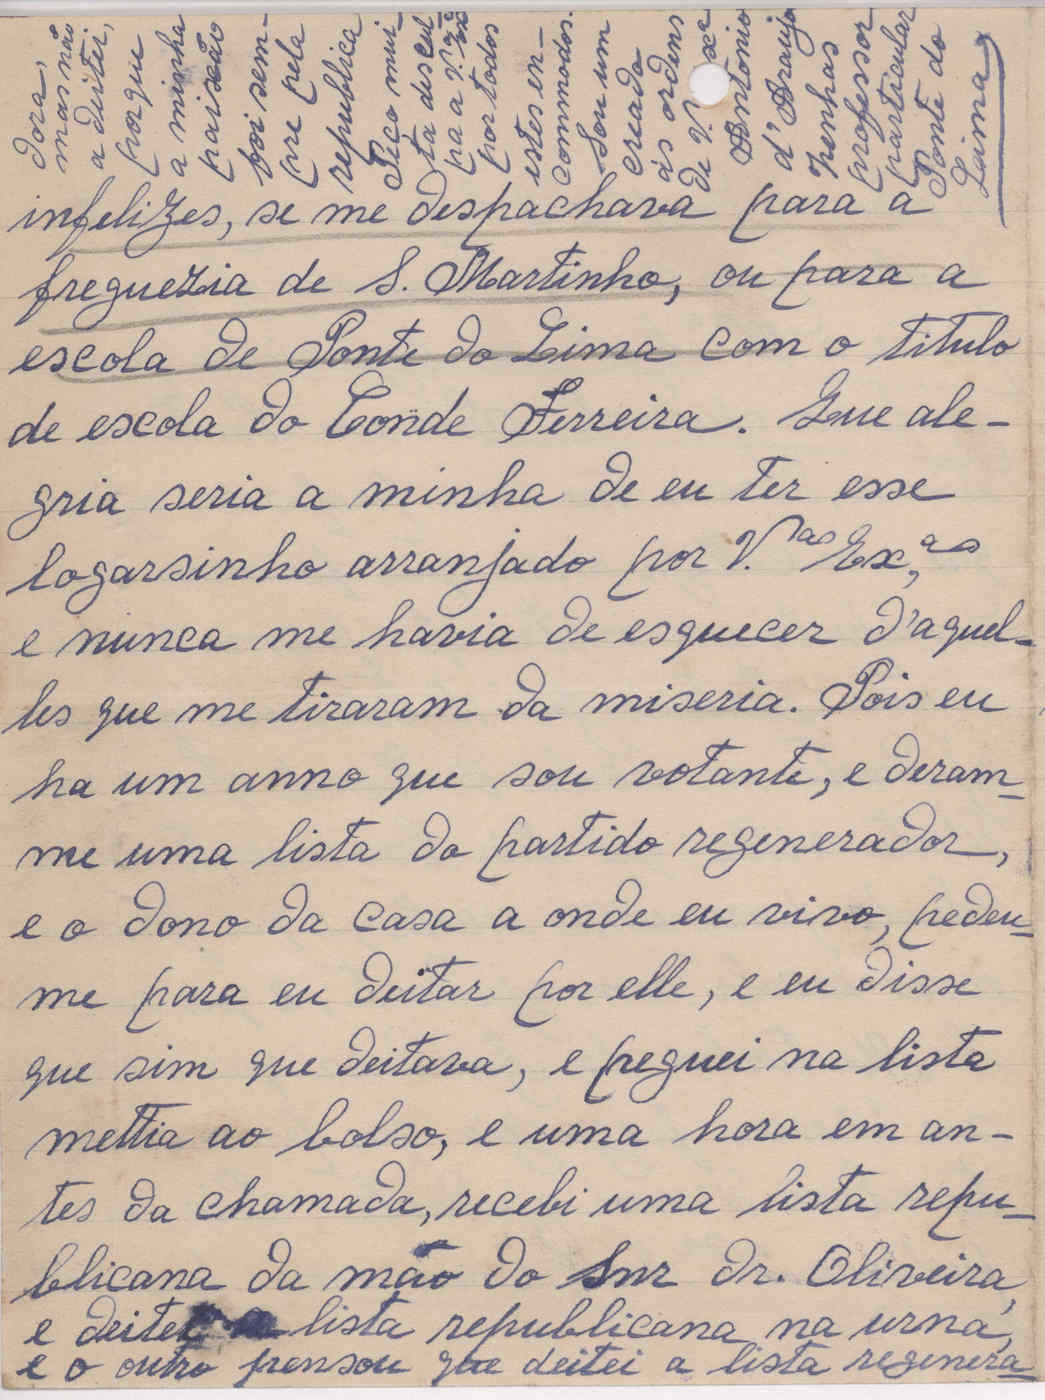 infelizes, se me despachava para a
freguezia de S. Martinho, ou para a
escola de Ponte do Lima com o titulo
de escola do Conde Ferreira. Que ale-
gria seria a minha de eu ter esse
logarsinho arranjado por V.as Ex.as,
e nunca me havia de esquecer d'aquel-
les que me tiraram da miseria. Pois eu
ha um anno que sou votante, e deram-
me uma lista do partido regenerador,
e o dono da casa a onde eu vivo, pedeu-
me para eu deitar por elle, e eu disse
que sim que deitava, e peguei na lista
mettia ao bolso, e uma hora em an-
tes da chamada, recebi uma lista repu-
blicana da mão do Snr dr. Oliveira,
e deitei a lista republicana na urna,
e o outro pensou que deitei a lista regenera-
dora,
mas não
a deitei,
porque
a minha
paixão
foi sem-
pre pela
republica
Peço mui-
ta descul-
pa a V.as Ex.as
por todos
estes en-
commodos.
Sou um
creado
ás ordens
de V. Ex.ª
Antonio
d'Araujo
Penhas
professor
particular
Ponte do
Lima